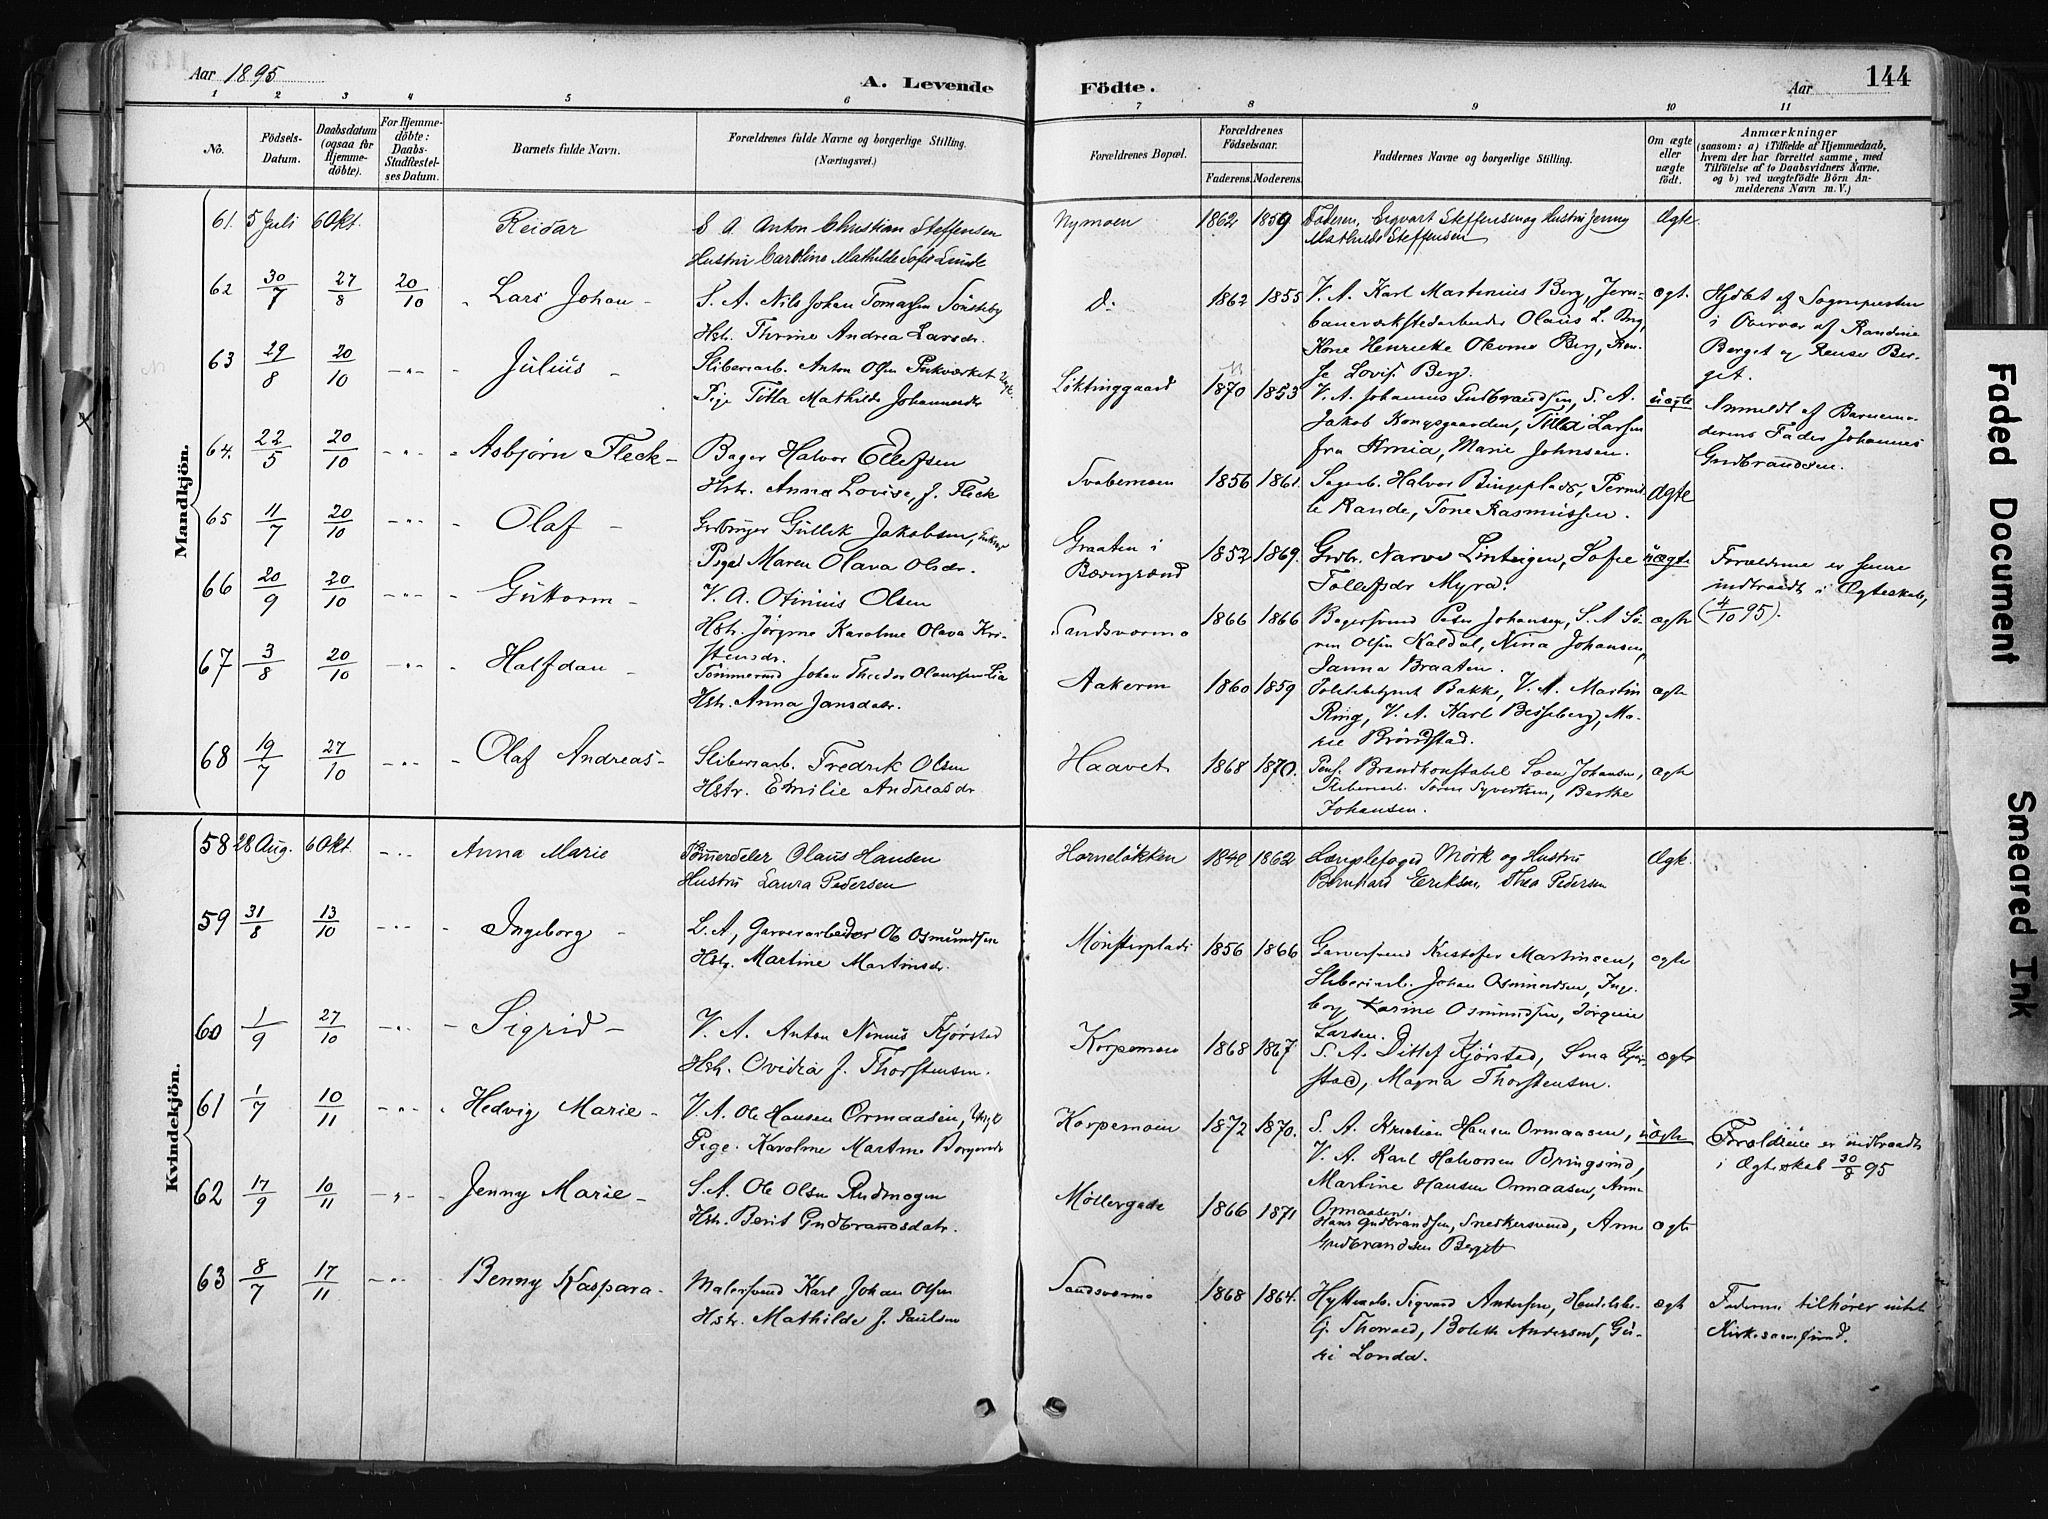 Aar 1895
A. Levende
Födte.
Aar
144
1 2 3 4 5 6 7 8 9 10 11
No.
Födsels-Datum.
Daabsdatum (ogsaa for Hjemmedöbte).
For Hjemmedöbte: Daabs-Stadfæstelses Datum.
Barnets fulde Navn.
Forældrenes fulde Navne og borgerlige Stilling. (Næringsvei.)
Forældrenes Bopæl.
Forældrenes Födselsaar.
Faderens. Moderens.
Faddernes Navne og borgerlige Stilling.
Om ægte eller uægte födt.
Anmærkninger
(saasom: a) i Tilfælde af Hjemmedaab, hvem der har forrettet samme, med Tilföielse af to Daabsvidners Navne, og b) ved uægtefödte Börn Anmelderens Navn m. V.)
Mandkjön.
61. 5 Juli 6 Okt. Reidar
S. A. Anton Christian Steffensen
Hustru Caroline Mathilde Sofie Lunde
Nymoen 1862 1859
Faderen, Sigvart Steffensen og Hustru Jenny
Mathilde Steffensen
Ægte
62 30/7 27/8 20/10 Lars Johan
S. A. Nils Johan Tomassen Sønsteby
Hstr. Thrine Andrea Larsdr.
D- 1862 1855
V. A. Karl Martinius Berg, Jern-
baneverkstedarbeider Olaus L. Berg,
Kone Henrikke Olevine Berg,
Lovise Berg.
ægt.
Hjdøbt af Sognepresten
i Overvær af Randine
Berget og Rense Ber-
get.
63 29/8 20/10 Julius
Sliberiarb. Anton Olsen Pukværket Ungk.
Pige Tilla Mathilde Johannesdr
Løktinggaard 1870 1853
V. A. Johannes Gudbrandsen, S. A.
Jakob Kongsgaarden, Tilla Larsen
fra Hmia, Marie Johnsen.
uægte
Anmeldt af Barnemo-
derens Fader Johannes
Gudbrandsen.
64. 22/5 20/10 Asbjørn Fleck
Bager Halvor Ellefsen
Hstr. Anna Lovise, J. Fleck
Svabemoen 1856 1861.
Sagarb. Halvor Bingeplads, Pernil-
le Rande, Tone Rasmussen.
Ægte
65 11/7 20/10 Olaf
Grdbruger Gullik Jakobsen, Enkem.
Pige Maren Olava Olsdr.
Graaten i
Bævergrænd
1852 1869.
Grdbr. Narve Linteigen, Sofie
Tollefsdr Myra.
uægte
Forældrene er senere
indtraadt i Ægteskab,
(4/10 95).
66 20/9 20/10 Guttorm
V. A. Otinius Olsen
Hstr. Jörgine Karoline Olava Kri-
stensdr.
Sandsværmo 1866 1866
Bagersvend Peter Johansen, S. A Sö-
ren Olsen Kaldal, Nina Johansen,
Janna Braaten.
ægte
67 3/8 20/10 Halfdan
Tömmermd Johan Theodor Olaussen Lia
Hstr. Anna Jansdatr.
Aakeren 1860 1859
Politibetjent Bakke, V. A. Martin
Ring, V. A. Karl Besseberg, Ma-
rie Bröndstad.
ægte
68 19/7 27/10 Olaf Andreas
Sliberiarb. Fredrik Olsen
Hstr. Emilie Andreasdr
Haavet 1868 1870.
Pens. Brandkonstabel Soen Johansen,
Sliberiarb. Sören Syvertsen, Berthe
Johansen.
ægte
Kvindekjön.
58 28 Aug. 6 Okt. Anna Marie
Tömmerdeler Olaus Hansen
Hustru Laura Pedersen
Horneløkken 1842 1862
Lænsplefoged Mörk og Hustru
Bernhard Eriksen, Thea Pedersen
Ægte.
59 31/8 13/10 Ingeborg
L. A, Garverarbeider Ole Osmundsen
Hstr. Martine Martinsdr.
Mönsterplads 1856 1866
Garversvend Kristofer Martinsen,
Sliberiarb. Johan Osmundsen, Inge-
borg Karine Osmundsen, Jörgine
Larsen.
ægte
60 1/9 27/10 Sigrid
V. A. Anton Ninnus Kjörstad
Hstr. Ovidia J. Thorstensen.
Korpemoen 1868 1867
S. A. Ditlef Kjörstad, Sina Kjör-
stad, Magna Thorstensen.
ægte
61 1/7 10/11 Hedvig Marie
V. A. Ole Hansen Ormaasen, Ungk.
Pige. Karoline Martine Borgersdr
Korpemoen 1872 1870.
S. A. Kristian Hansen Ormaasen,
V. A. Karl Halvorsen Bringsind,
Martine Hansen Ormaasen, Anne
Ormaasen.
uægte
Forældrene er indtraadt
i Ægteskab 30/8 95
62 17/9 10/11 Jenny Marie
S. A. Ole Olsen Rudmogen
Hstr. Berit Gudbrandsdatr.
Møllergade 1866 1871
Hans Gudbrandsen, Snedkersvend, Anne
Gudbrandsen Berget
ægte
63 8/7 17/11 Benny Kaspara
Malersvend Karl Johan Olsen
Hstr. Mathilde J. Paulsen
Sandsværmo 1868 1864.
Hyttearb. Sigvard Andersen, Handelsbe-
tj. Thorvald, Bolette Andersen, Gu-
ri Londa.
ægte
Faderen tilhører intet
Kirkesamfund.
Faded Document
Smeared Ink